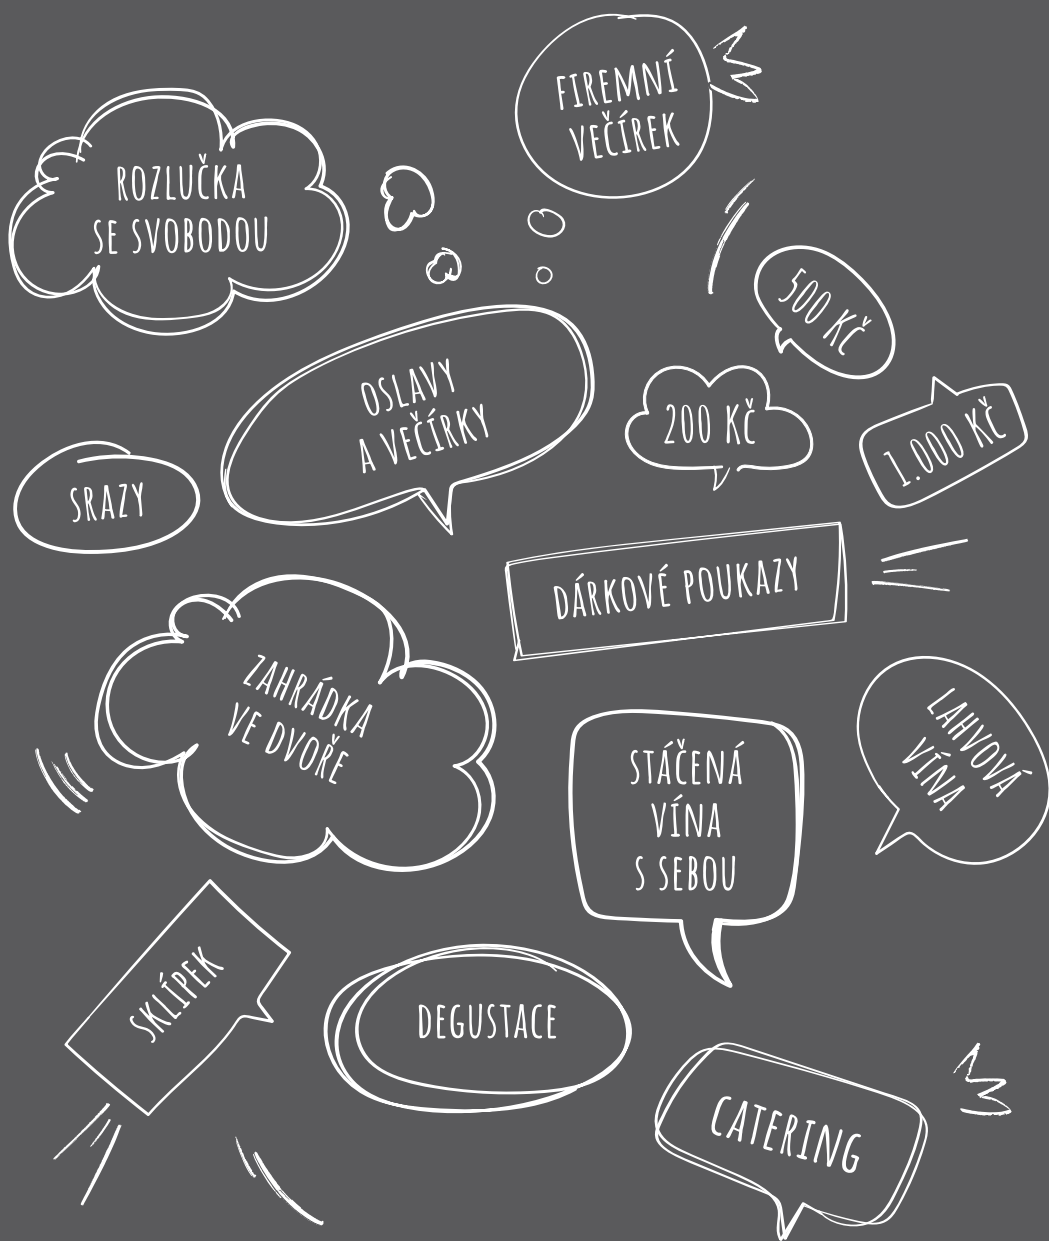 FIREMNÍ
VEČÍREK
ROZLUČKA
SE SVOBODOU
500 KČ
OSLAVY
A VEČÍRKY
200 KČ
1.000 KČ
SRAZY
DÁRKOVÉ POUKAZY
ZAHRÁDKA
VE DVOŘE
LAHVOVÁ
VÍNA
STÁČENÁ
VÍNA
S SEBOU
SKLÍPEK
DEGUSTACE
CATERING